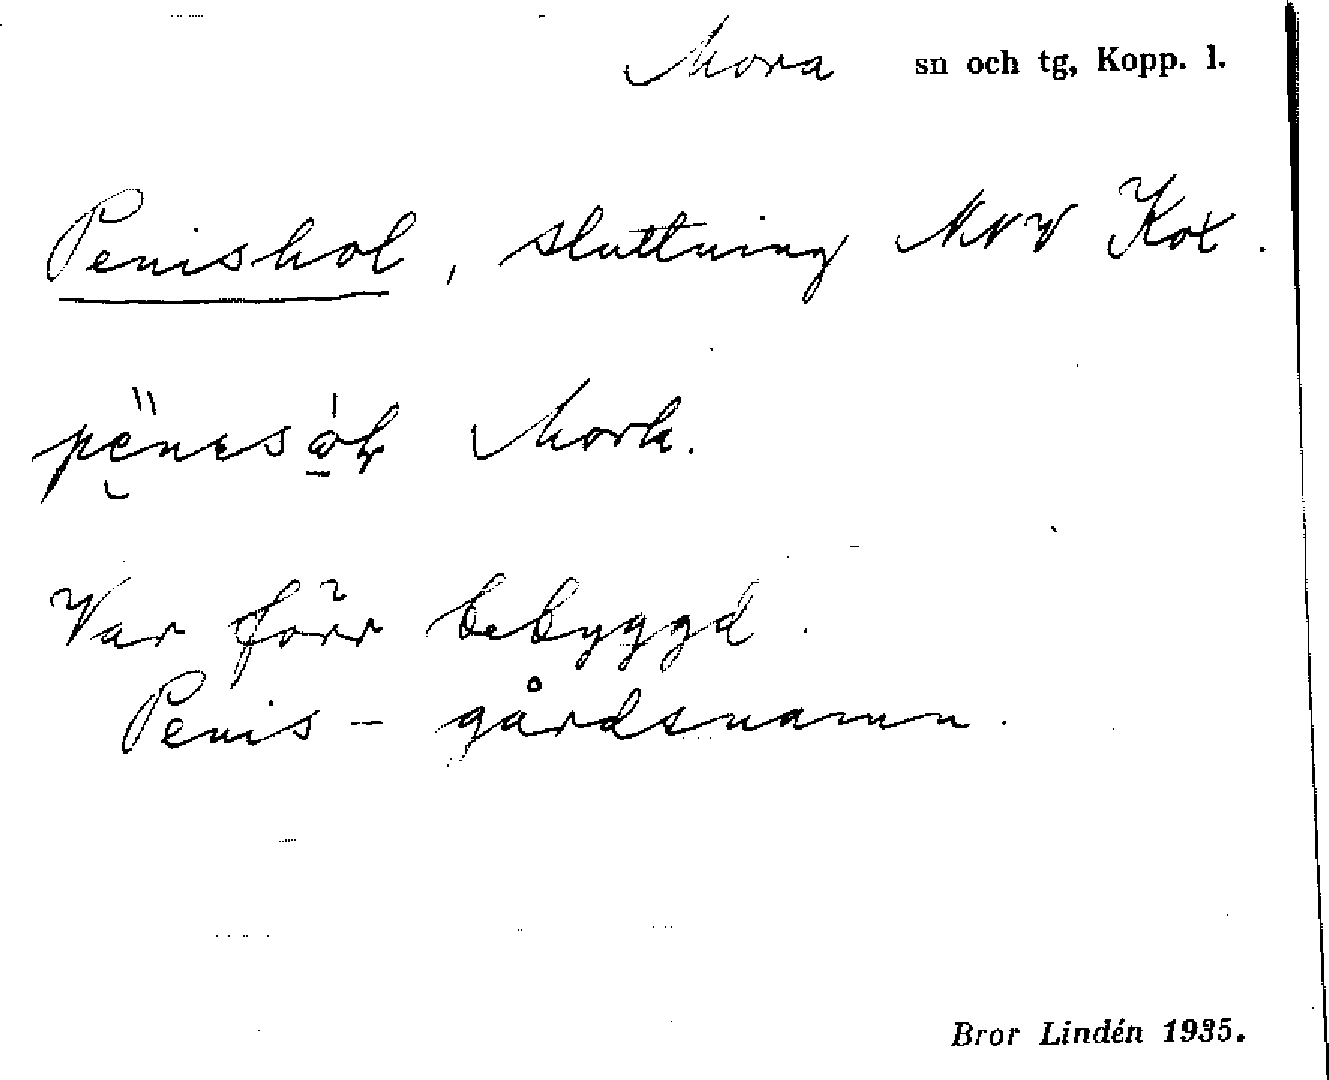 Mora sn och tg, Kopp. l.
Penishol, sluttning NNV Kot.
Mork.
Var förr bebyggd.
Penis- gårdsnamn.
Bror Lindén 1935.